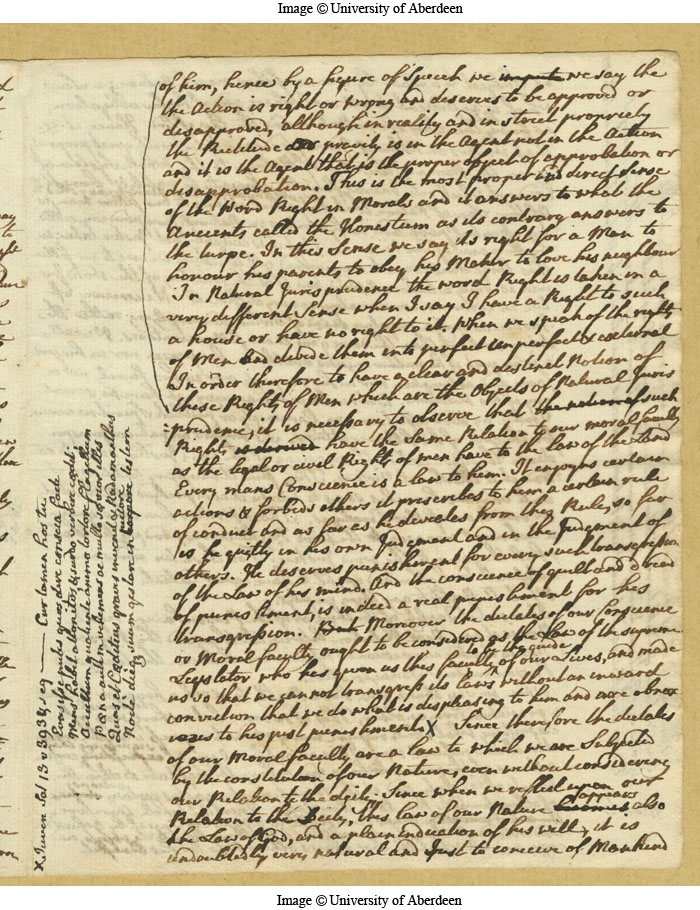 Image © University of Aberdeen
of him, hence by a figure of Speech we impute we say the
the Action is right or wrong and deserves to be approved or
disapproved, although in reality and in strict propriety
the Rectitude or pravity is in the Agent not in the Action
and it is the Agent that is the proper object of approbation or
disapprobation. This is the most proper and direct Sense
of the Word Right in Morals and it answers to what the
Ancients called the Honestum as its contrary answers to
the turpe. In this Sense we say its right for a Man to
honour his parents to obey his Maker to love his neighbour
In Natural Jurisprudence the word Right is taken in a
very different Sense when I say I have a Right to such
a house or have no right to it. When we speak of the rights
of Men and divide them into perfect imperfect & external
In order therefore to have a clear and distinct Notion of
these Rights of Men which are the Objects of Natural Juris
:prudence, it is necessary to observe that the notion of such
Rights is derived have the Same Relation to our moral faculty
as the legal or civil Rights of men have to the law of the Land
Every mans Conscience is a law to him. It enjoyns certain
actions & forbids others it prescribes to him a certain rule
of conduct and as far as he deviates from this Rule, so far
is he guilty in his own Judgment and in the Judgment of
others. He deserves punishment for every such transgression
of the Law of his mind. And the conscience of guilt and dread
of punishment, is indeed a real punishment for his
transgression. But Moreover the dictates of our Conscience
or Moral faculty ought to be considered as the Law of the supreme
Legislator who has given us this faculty to be the guide of our Lives, and made
us so that we cannot transgress its laws without an inward
conviction that we do what is displeasing to him and are obnox
ious to his just punishments X Since therefore the dictates
of our Moral faculty are a law to which we are Subjected
by the constitution of our Nature, even without considering
our Relation to the deity. Since when we reflect upon our
Relation to the Deity, this law of our Nature becomes appears also
the Law of God, and a plain indication of his will, it is
undoubtedly very natural and Just to conceive of Mankind
X. Juven Sat 13 v 393 & seq —— Cur tamen hos tu
Evasisse putes quos diri conscia facti
Mens habet attonitos & surdo verbere cædit
Occultum quatiente animo tortore flagellum
Pæna autem vehemens ac multo sævior illis
Quas et Cæditius gravis invenit et Rhadamanthus
Nocte dieq suum gestare in corpore pectore testem
Image © University of Aberdeen